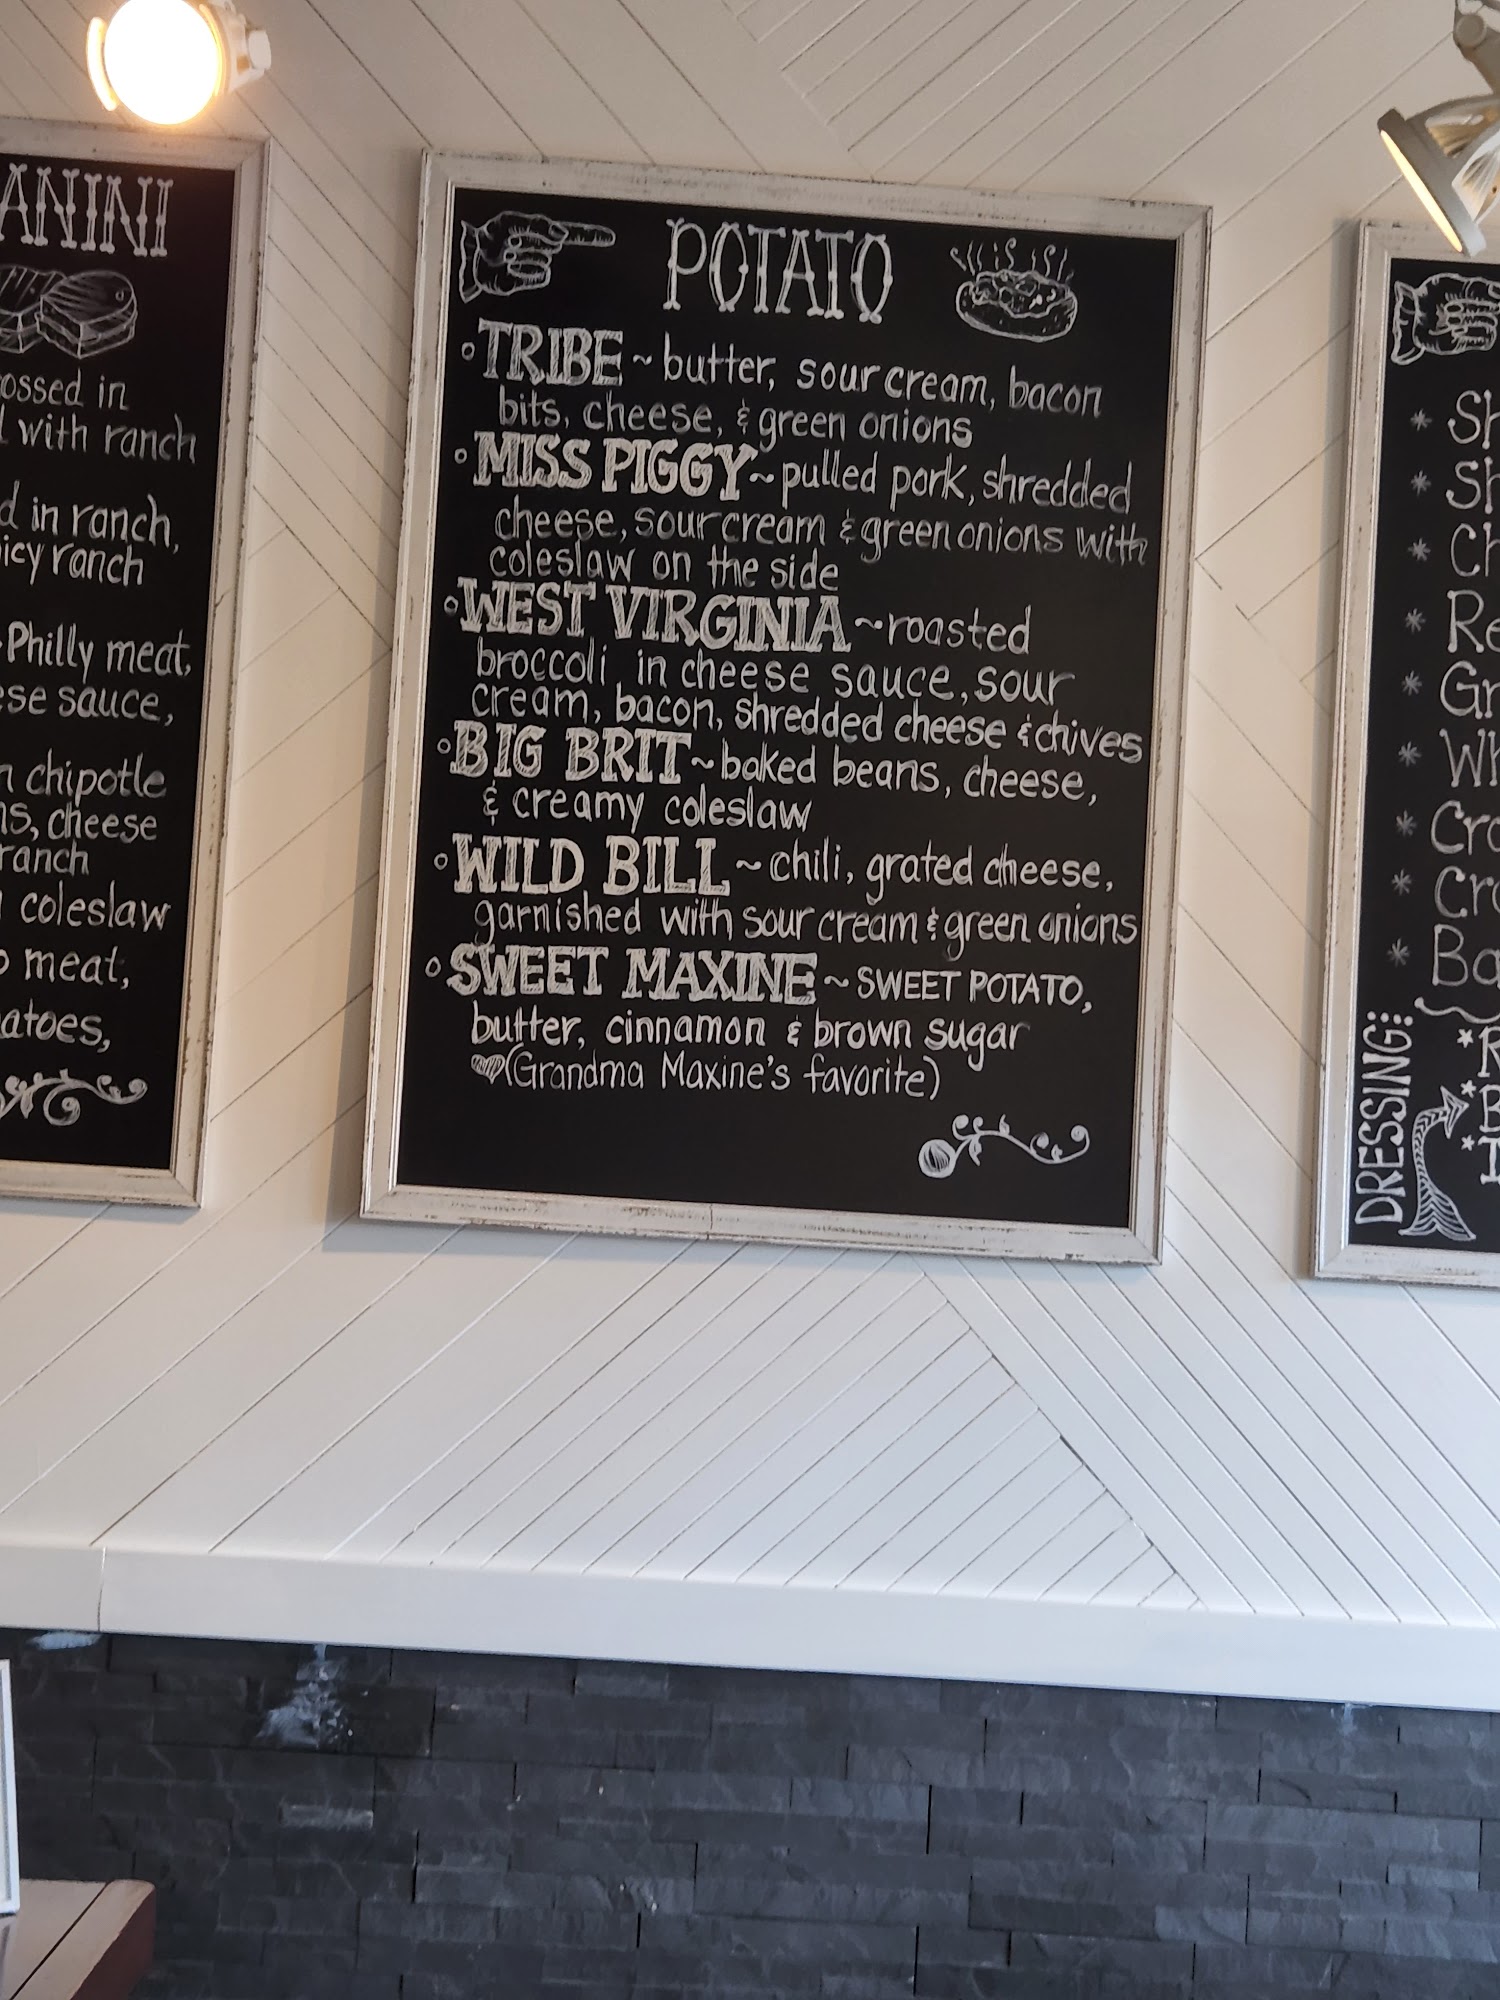 ANINI
ossed in
with ranch
d in ranch,
icy ranch
Philly meat,
ese sauce,
n chipotle
ns, cheese
ranch
coleslaw
o meat,
atoes,
POTATO
TRIBE ~ butter, sour cream, bacon
bits, cheese, & green onions
MISS PIGGY ~ pulled pork, shredded
cheese, sour cream & green onions with
coleslaw on the side
WEST VIRGINIA ~ roasted
broccoli in cheese sauce, sour
cream, bacon, shredded cheese & chives
BIG BRIT ~ baked beans, cheese,
& creamy coleslaw
WILD BILL ~ chili, grated cheese,
garnished with sour cream & green onions
SWEET MAXINE ~ SWEET POTATO,
butter, cinnamon & brown sugar
(Grandma Maxine's favorite)
* Sh
* Sh
* Ch
* Re
* Gr
* Wh
* Cro
* Cro
* Ba
DRESSING:
* R
* B
* I